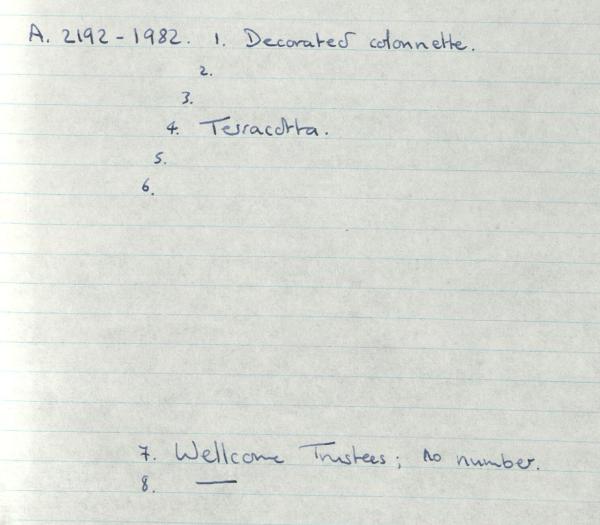 A. 2192-1982. 1. Decorated colonnette.
2.
3.
4. Terracotta.
5.
6.
7. Wellcome Trustees; no number.
8. —